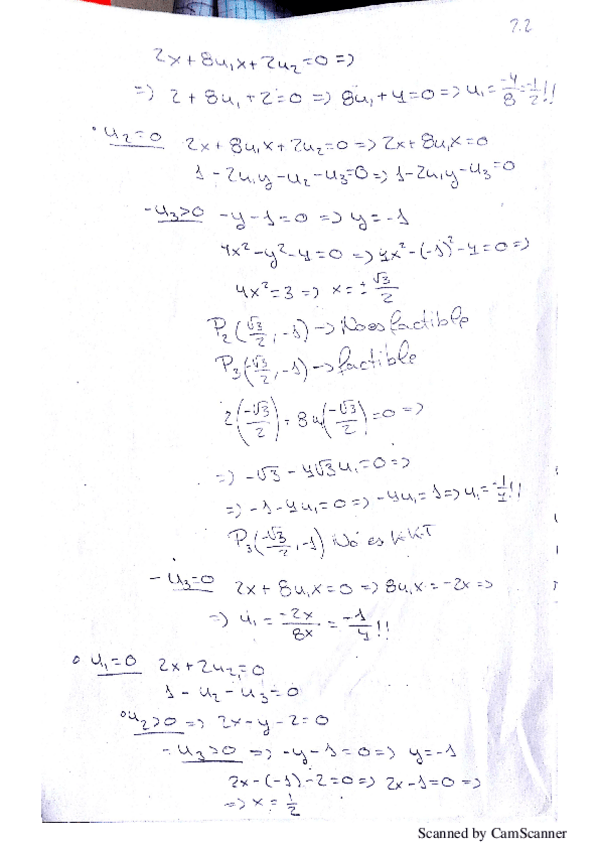 7.2
2x + 8u₁x + 2u₂ = 0 =>
=> 2 + 8u₁ + 2 = 0 => 8u₁ + 4 = 0 => u₁ = -4/8 = -1/2 !!
• u₂ = 0 2x + 8u₁x + 2u₂ = 0 => 2x + 8u₁x = 0
1 - 2u₁y - u₂ - u₃ = 0 => 1 - 2u₁y - u₃ = 0
- u₃ > 0 -y - 1 = 0 => y = -1
4x² - y² - 4 = 0 => 4x² - (-1)² - 4 = 0 =>
4x² = 3 => x = ± √3/2
P₂(√3/2, -1) -> No es factible
P₃(-√3/2, -1) -> factible
2(-√3/2) + 8u₁(-√3/2) = 0 =>
=> -√3 - 4√3u₁ = 0 =>
=> -1 - 4u₁ = 0 => -4u₁ = 1 => u₁ = -1/4 !!
P₃(-√3/2, -1) No es KKT
- u₃ = 0 2x + 8u₁x = 0 => 8u₁x = -2x =>
=> u₁ = -2x/8x = -1/4 !!
• u₁ = 0 2x + 2u₂ = 0
1 - u₂ - u₃ = 0
• u₂ > 0 => 2x - y - 2 = 0
- u₃ > 0 => -y - 1 = 0 => y = -1
2x - (-1) - 2 = 0 => 2x - 1 = 0 =>
=> x = 1/2
Scanned by CamScanner